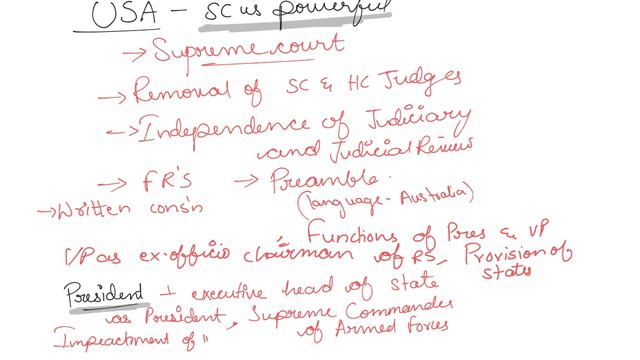 USA - SC is powerful
→ Supreme court
→ Removal of SC & HC Judges
→ Independence of Judiciary
and Judicial Review
→ FR'S → Preamble.
(language - Australia)
→ Written cons'n
Functions of Pres & VP
VP as ex-officio chairman of RS, Provision of
States
President ⊥ executive head of state
as President, Supreme Commander
of Armed forces
Impeachment of "